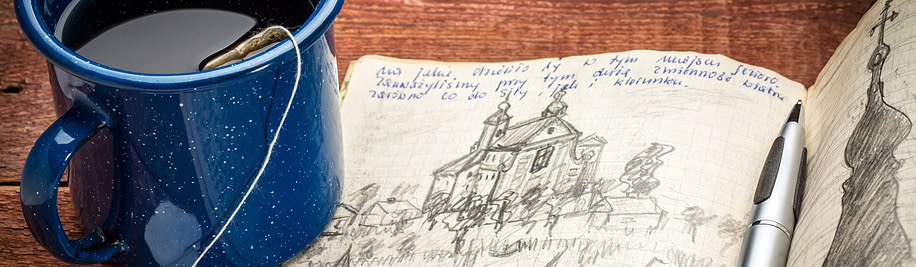 na jakiś dzieliło ty w tym miejscu jezioro.
Zauważyliśmy przy tym dużą zmienność wiatru
zarówno co do siły, jak i kierunku.